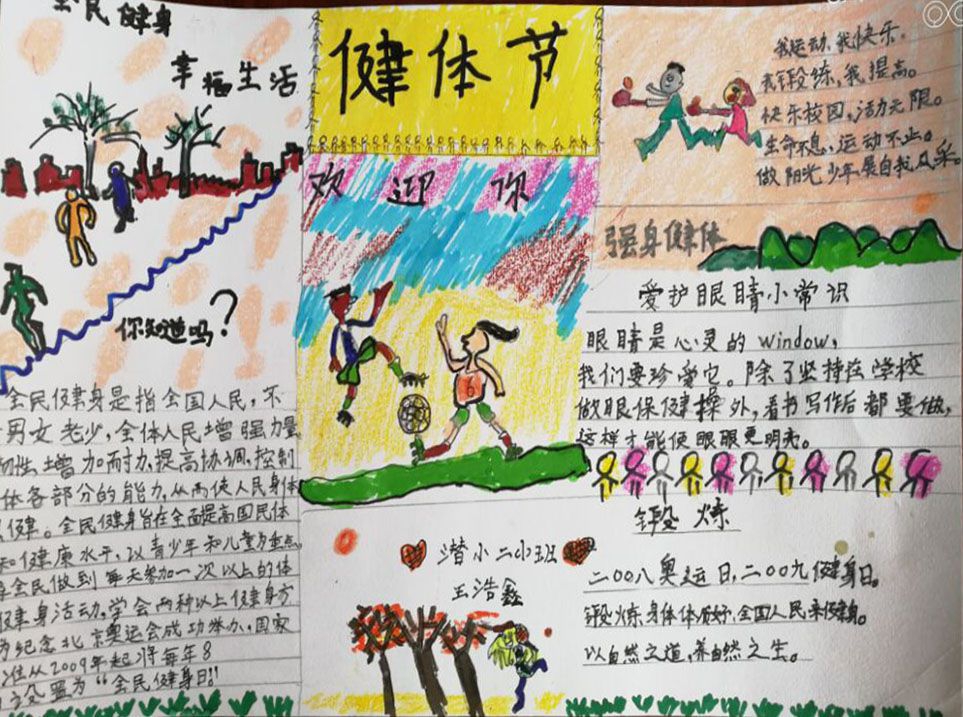 全民健身
幸福生活
你知道吗?
全民健身是指全国人民,不
男女老少,全体人民增强力量
韧性增加耐力,提高协调,控制
体各部分的能力,从而使人民身体
健。全民健身旨在全面提高国民体
和健康水平,以青少年和儿童为重点
全民做到每天参加一次以上的体
健身活动,学会两种以上健身方
为纪念北京奥运会成功举办,国家
准从2009年起将每年8
设置为“全民健身日!”
健体节
欢迎你
6
潜小二小班
王浩鑫
我运动,我快乐。
我锻炼,我提高。
快乐校园,活力无限。
生命不息,运动不止。
做阳光少年展自我风采。
强身健体
爱护眼睛小常识
眼睛是心灵的window,
我们要珍爱它。除了坚持在学校
做眼保健操外,看书写作后都要做,
这样才能使眼眼更明亮。
锻炼
二〇〇八奥运日,二〇〇九健身日。
锻炼身体体质好,全国人民来健身。
以自然之道,养自然之生。